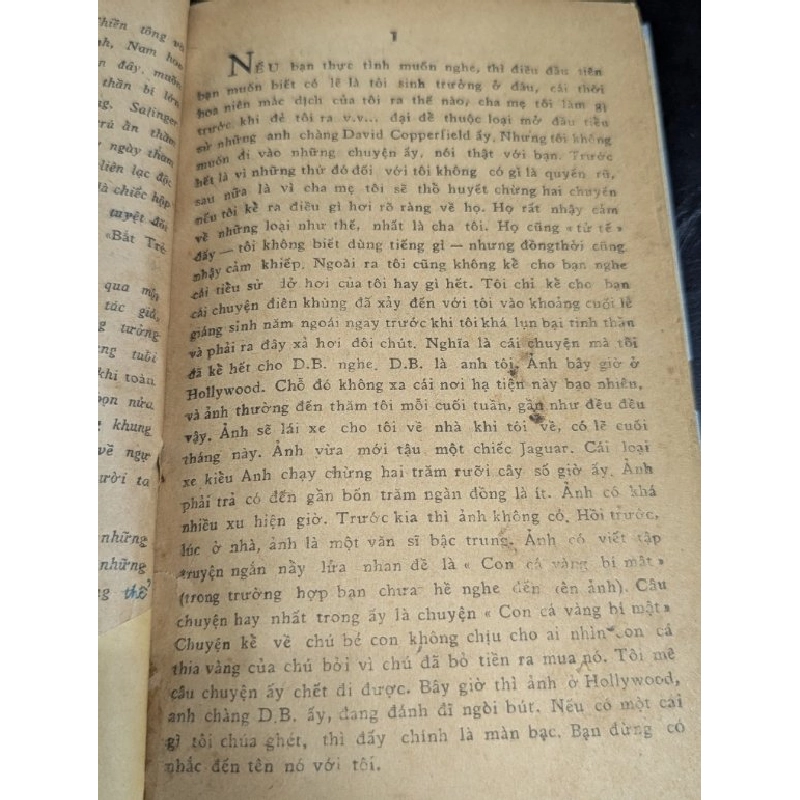 hiền tông
Nam hoa
đây. muộn
thần bí lớn
Salinger
trú ẩn thầm
ngày thảm
liên lạc độc
là chiếc hộp
tuyệt đối
«Bắt Trẻ
qua một
tác giả,
tưởng
tuổi
khi toàn
bọn nửa
khung
về ngự
ười ta
những
những
thế
1
NẾU bạn thực tình muốn nghe, thì điều đầu tiên
bạn muốn biết có lẽ là tôi sinh trưởng ở đâu, cái thời
hoa niên mắc dịch của tôi ra thế nào, cha mẹ tôi làm gì
trước khi đẻ tôi ra v.v... đại để thuộc loại mở đầu tiểu
sử những anh chàng David Copperfield ấy. Nhưng tôi không
muốn đi vào những chuyện ấy, nói thật với bạn. Trước
hết là vì những thứ đó đối với tôi không có gì là quyến rũ,
sau nữa là vì cha mẹ tôi sẽ thổ huyết chừng hai chuyến
nếu tôi kể ra điều gì hơi rõ ràng về họ. Họ rất nhậy cảm
về những loại như thế, nhất là cha tôi. Họ cũng « tử tế »
đấy — tôi không biết dùng tiếng gì — nhưng đồngthời cũng
nhậy cảm khiếp. Ngoài ra tôi cũng không kể cho bạn nghe
cái tiểu sử dở hơi của tôi hay gì hết. Tôi chỉ kể cho bạn
cái chuyện điên khùng đã xảy đến với tôi vào khoảng cuối lễ
giáng sinh năm ngoái ngay trước khi tôi khá lụn bại tinh thần
và phải ra đây xả hơi đôi chút. Nghĩa là cái chuyện mà tôi
đã kể hết cho D.B. nghe. D.B. là anh tôi. Ảnh bây giờ ở
Hollywood. Chỗ đó không xa cái nơi hạ tiện này bao nhiên,
và ảnh thường đến thăm tôi mỗi cuối tuần, gần như đều đều
vậy. Ảnh sẽ lái xe cho tôi về nhà khi tôi về, có lẽ cuối
tháng này. Ảnh vừa mới tậu một chiếc Jaguar. Cái loại
xe kiểu Anh chạy chừng hai trăm rưỡi cây số giờ ấy. Ảnh
phải trả có đến gần bốn trăm ngàn đồng là ít. Ảnh có khá
nhiều xu hiện giờ. Trước kia thì ảnh không có. Hồi trước,
lúc ở nhà, ảnh là một văn sĩ bậc trung. Ảnh có viết tập
truyện ngắn nầy lửa nhan đề là « Con cá vàng bí mật »
(trong trường hợp bạn chưa hề nghe đến tên ảnh). Câu
chuyện hay nhất trong ấy là chuyện « Con cá vàng bí mật »
Chuyện kể về chú bé con không chịu cho ai nhìn con cá
thia vàng của chú bởi vì chú đã bỏ tiền ra mua nó. Tôi mê
câu chuyện ấy chết đi được. Bây giờ thì ảnh ở Hollywood,
anh chàng D.B. ấy, đang đánh đĩ ngòi bút. Nếu có một cái
gì tôi chúa ghét, thì đấy chính là màn bạc. Bạn đừng có
nhắc đến tên nó với tôi.